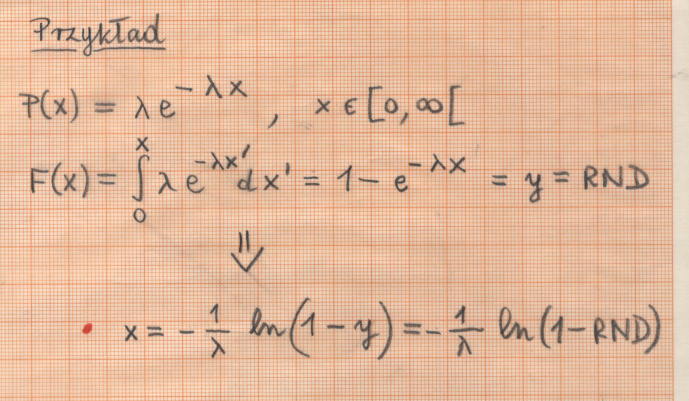 Przykład
P(x) = λ e^{-λx} , x ϵ [0, ∞[
F(x) = ∫_0^x λ e^{-λx'} dx' = 1 - e^{-λx} = y = RND
⇓
• x = - 1/λ ln(1 - y) = - 1/λ ln(1-RND)